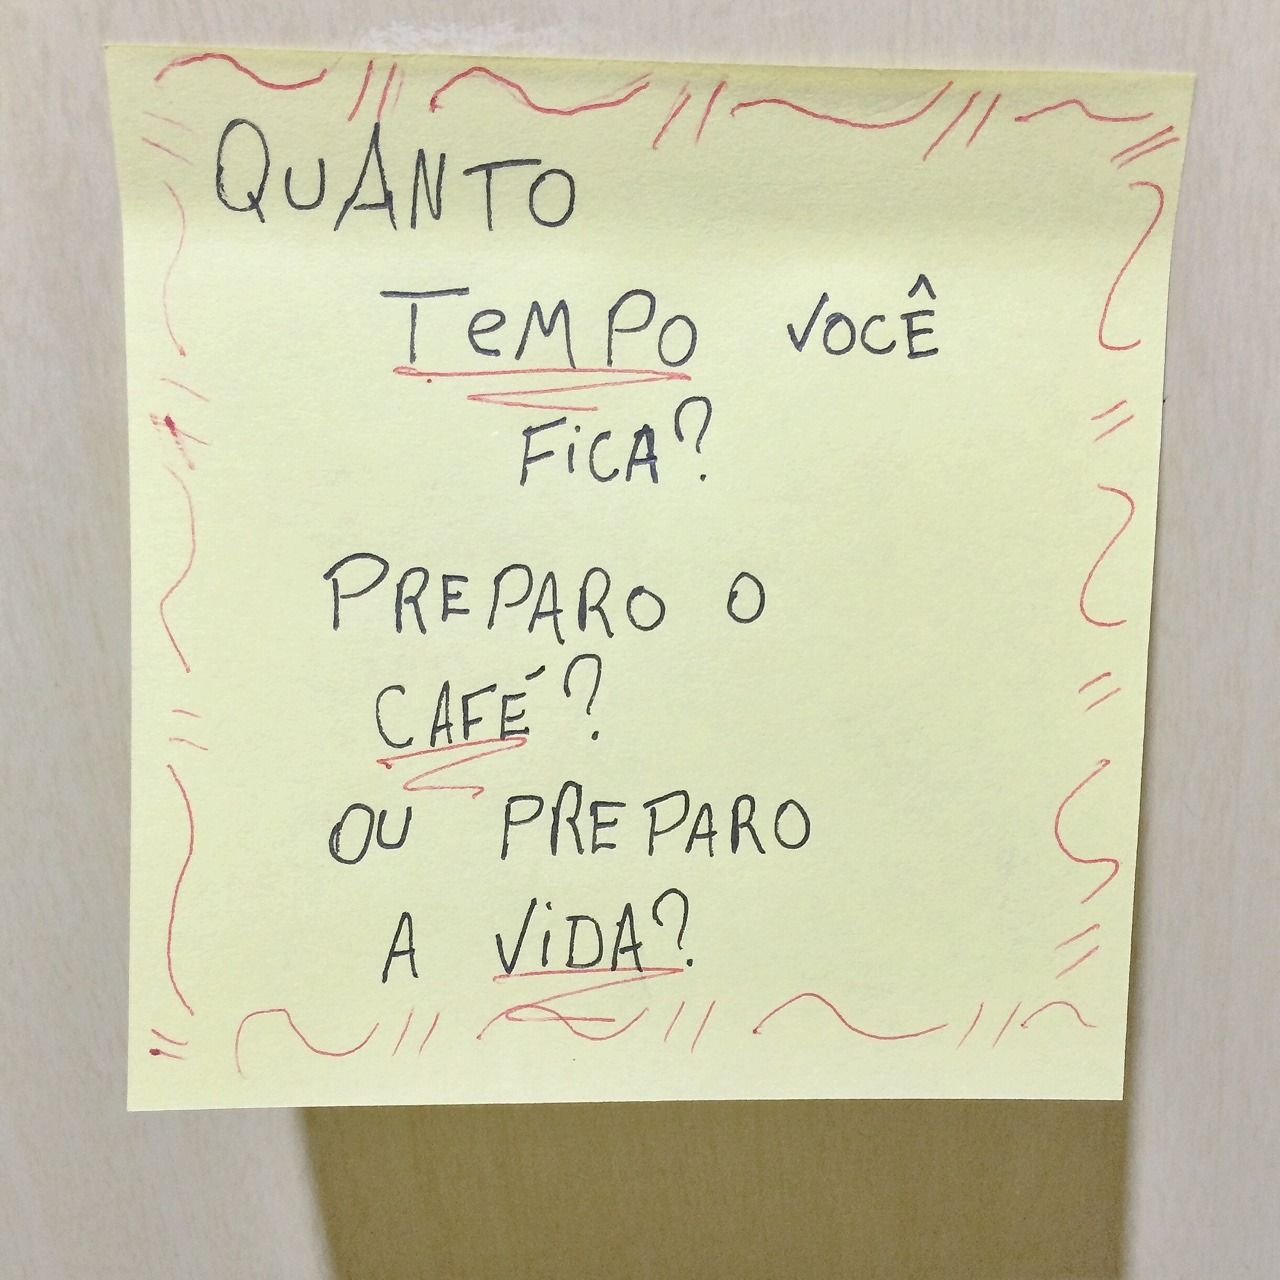 QUANTO
TEMPO VOCÊ
FICA?
PREPARO O
CAFÉ?
OU PREPARO
A VIDA?